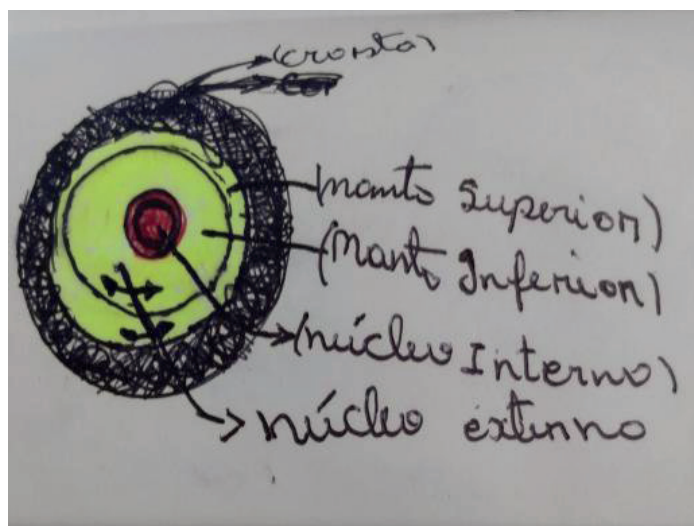 (crosta)
(manto Superior)
(Manto Inferior)
(núcleo Interno)
núcleo externo